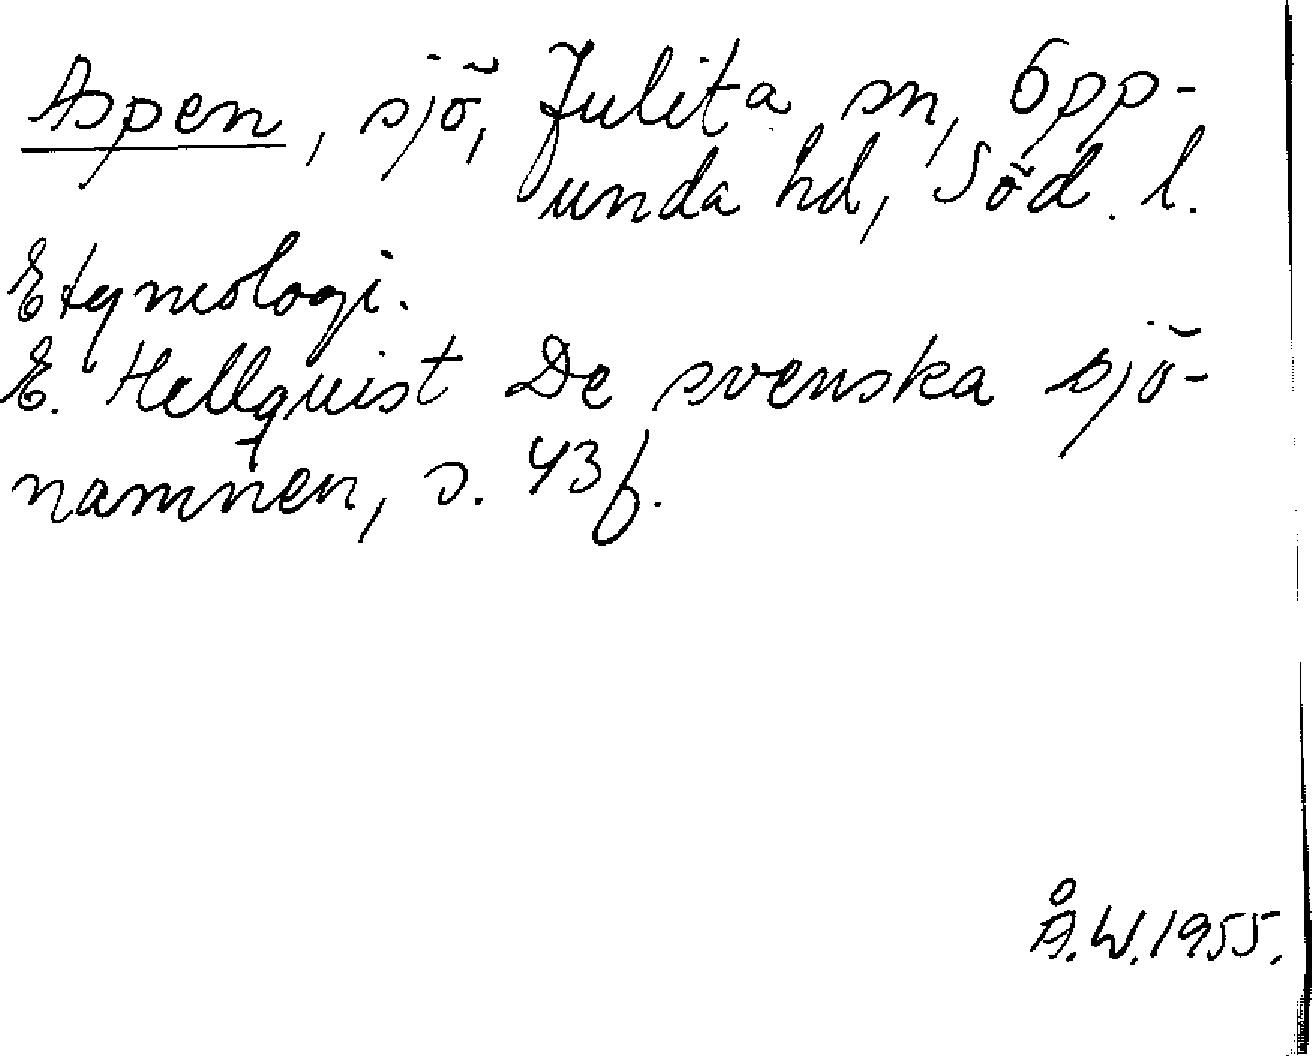 Aspen, sjö, Julita sn, Opp-
unda hd, Söd. l.
Etymologi.
E. Hellquist De svenska sjö-
namnen, s. 43 f.
Å.W. 1955.